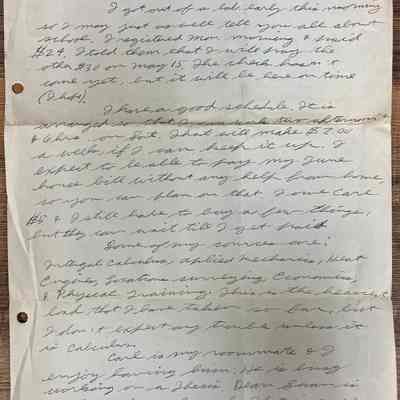 I got out of a lab early this morning
so I may just as well tell you all about
school. I registered Mon. morning & paid
$24. I told them that I will pay the
other $30 on May 15. The check hasn't
come yet, but it will be here on time
(I hope).
I have a good schedule. It is
arranged so that I can work two afternoons
& 6 hrs. on Sat. That will make $7.00
a week if I can keep it up. I
expect to be able to pay my June
house bill without any help from home,
so you can plan on that. I owe Carl
$5 & I still have to buy a few things,
but they can wait till I get paid.
Some of my courses are:
Integral Calculus, Applied Mechanics, Heat
Engines, Locations Surveying, Economics,
& Physical Training. This is the heaviest
load that I have taken so far, but
I don't expect any trouble unless it
is Calculus.
Carl is my roommate & I
enjoy having him. He is busy
working on a Thesis. Dean is